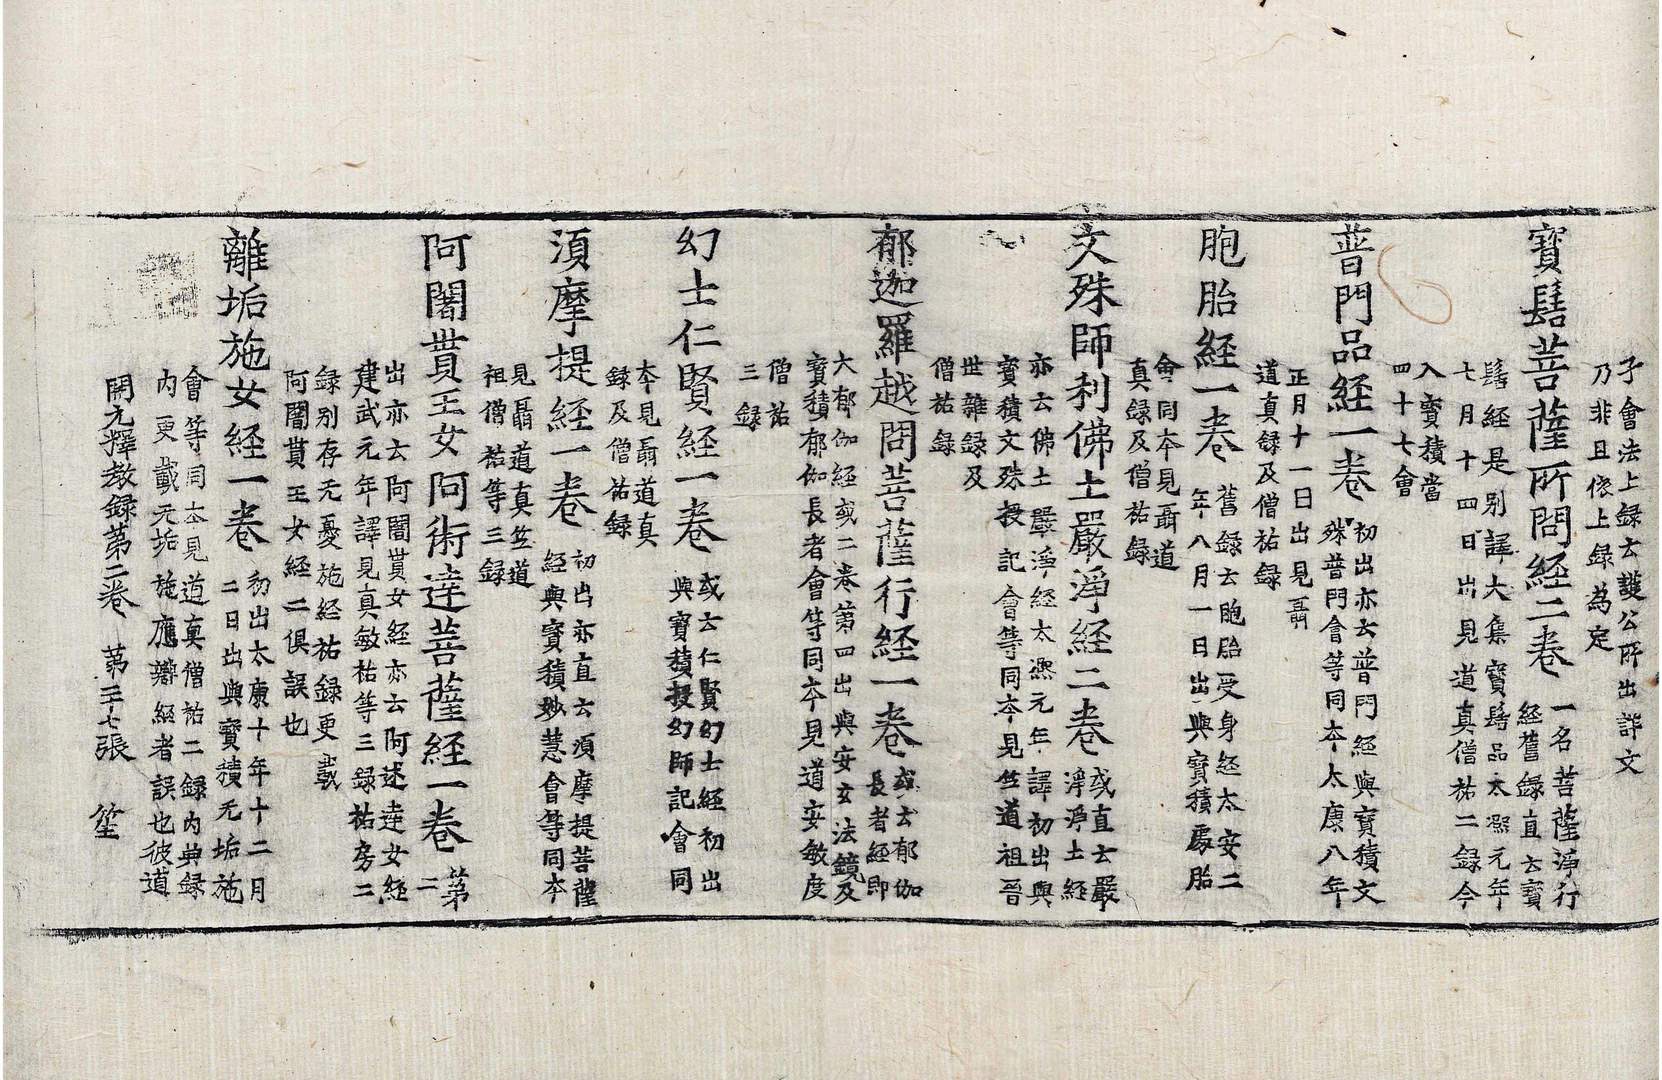 子會法上録云護公所出詳文
乃非且依上録為定
寶髻菩薩所問經二卷
一名菩薩淨行
經舊録直云寶
髻經是別譯大集寶髻品太熈元年
七月十四日出見道真僧祐二録今
入寶積當
四十七會
普門品經一卷
初出亦云普門經與寶積文
殊普門會等同本太康八年
正月十一日出見聶
道真録及僧祐録
胞胎經一卷
舊録云胞胎受身經太安二
年八月一日出與寶積處胎
會同本見聶道
真録及僧祐録
文殊師利佛土嚴淨經二卷
或直云嚴
淨淨土經
亦云佛土嚴淨經太熈元年譯初出與
寶積文殊授記會等同本見竺道祖晉
世雜録及
僧祐録
郁迦羅越問菩薩行經一卷
或云郁伽
長者經即
大郁伽經或二卷第四出與安玄法鏡及
寶積郁伽長者會等同本見道安敏度
僧祐
三録
幻士仁賢經一卷
或云仁賢幻士經初出
與寶積授幻師記會同
本見聶道真
録及僧祐録
須摩提經一卷
初出亦直云須摩提菩薩
經與寶積妙慧會等同本
見聶道真竺道
祖僧祐等三録
阿闍貰王女阿術達菩薩經一卷
第
二
出亦云阿闍貰女經亦云阿述達女經
建武元年譯見真敏祐等三録祐房二
録別存无憂施經祐録更載
阿闍貰王女經二俱誤也
離垢施女經一卷
初出太康十年十二月
二日出與寶積无垢施
會等同本見道真僧祐二録內典録
內更載无垢施應辯經者誤也彼道
開元釋教録第二卷　第二十七張　笙